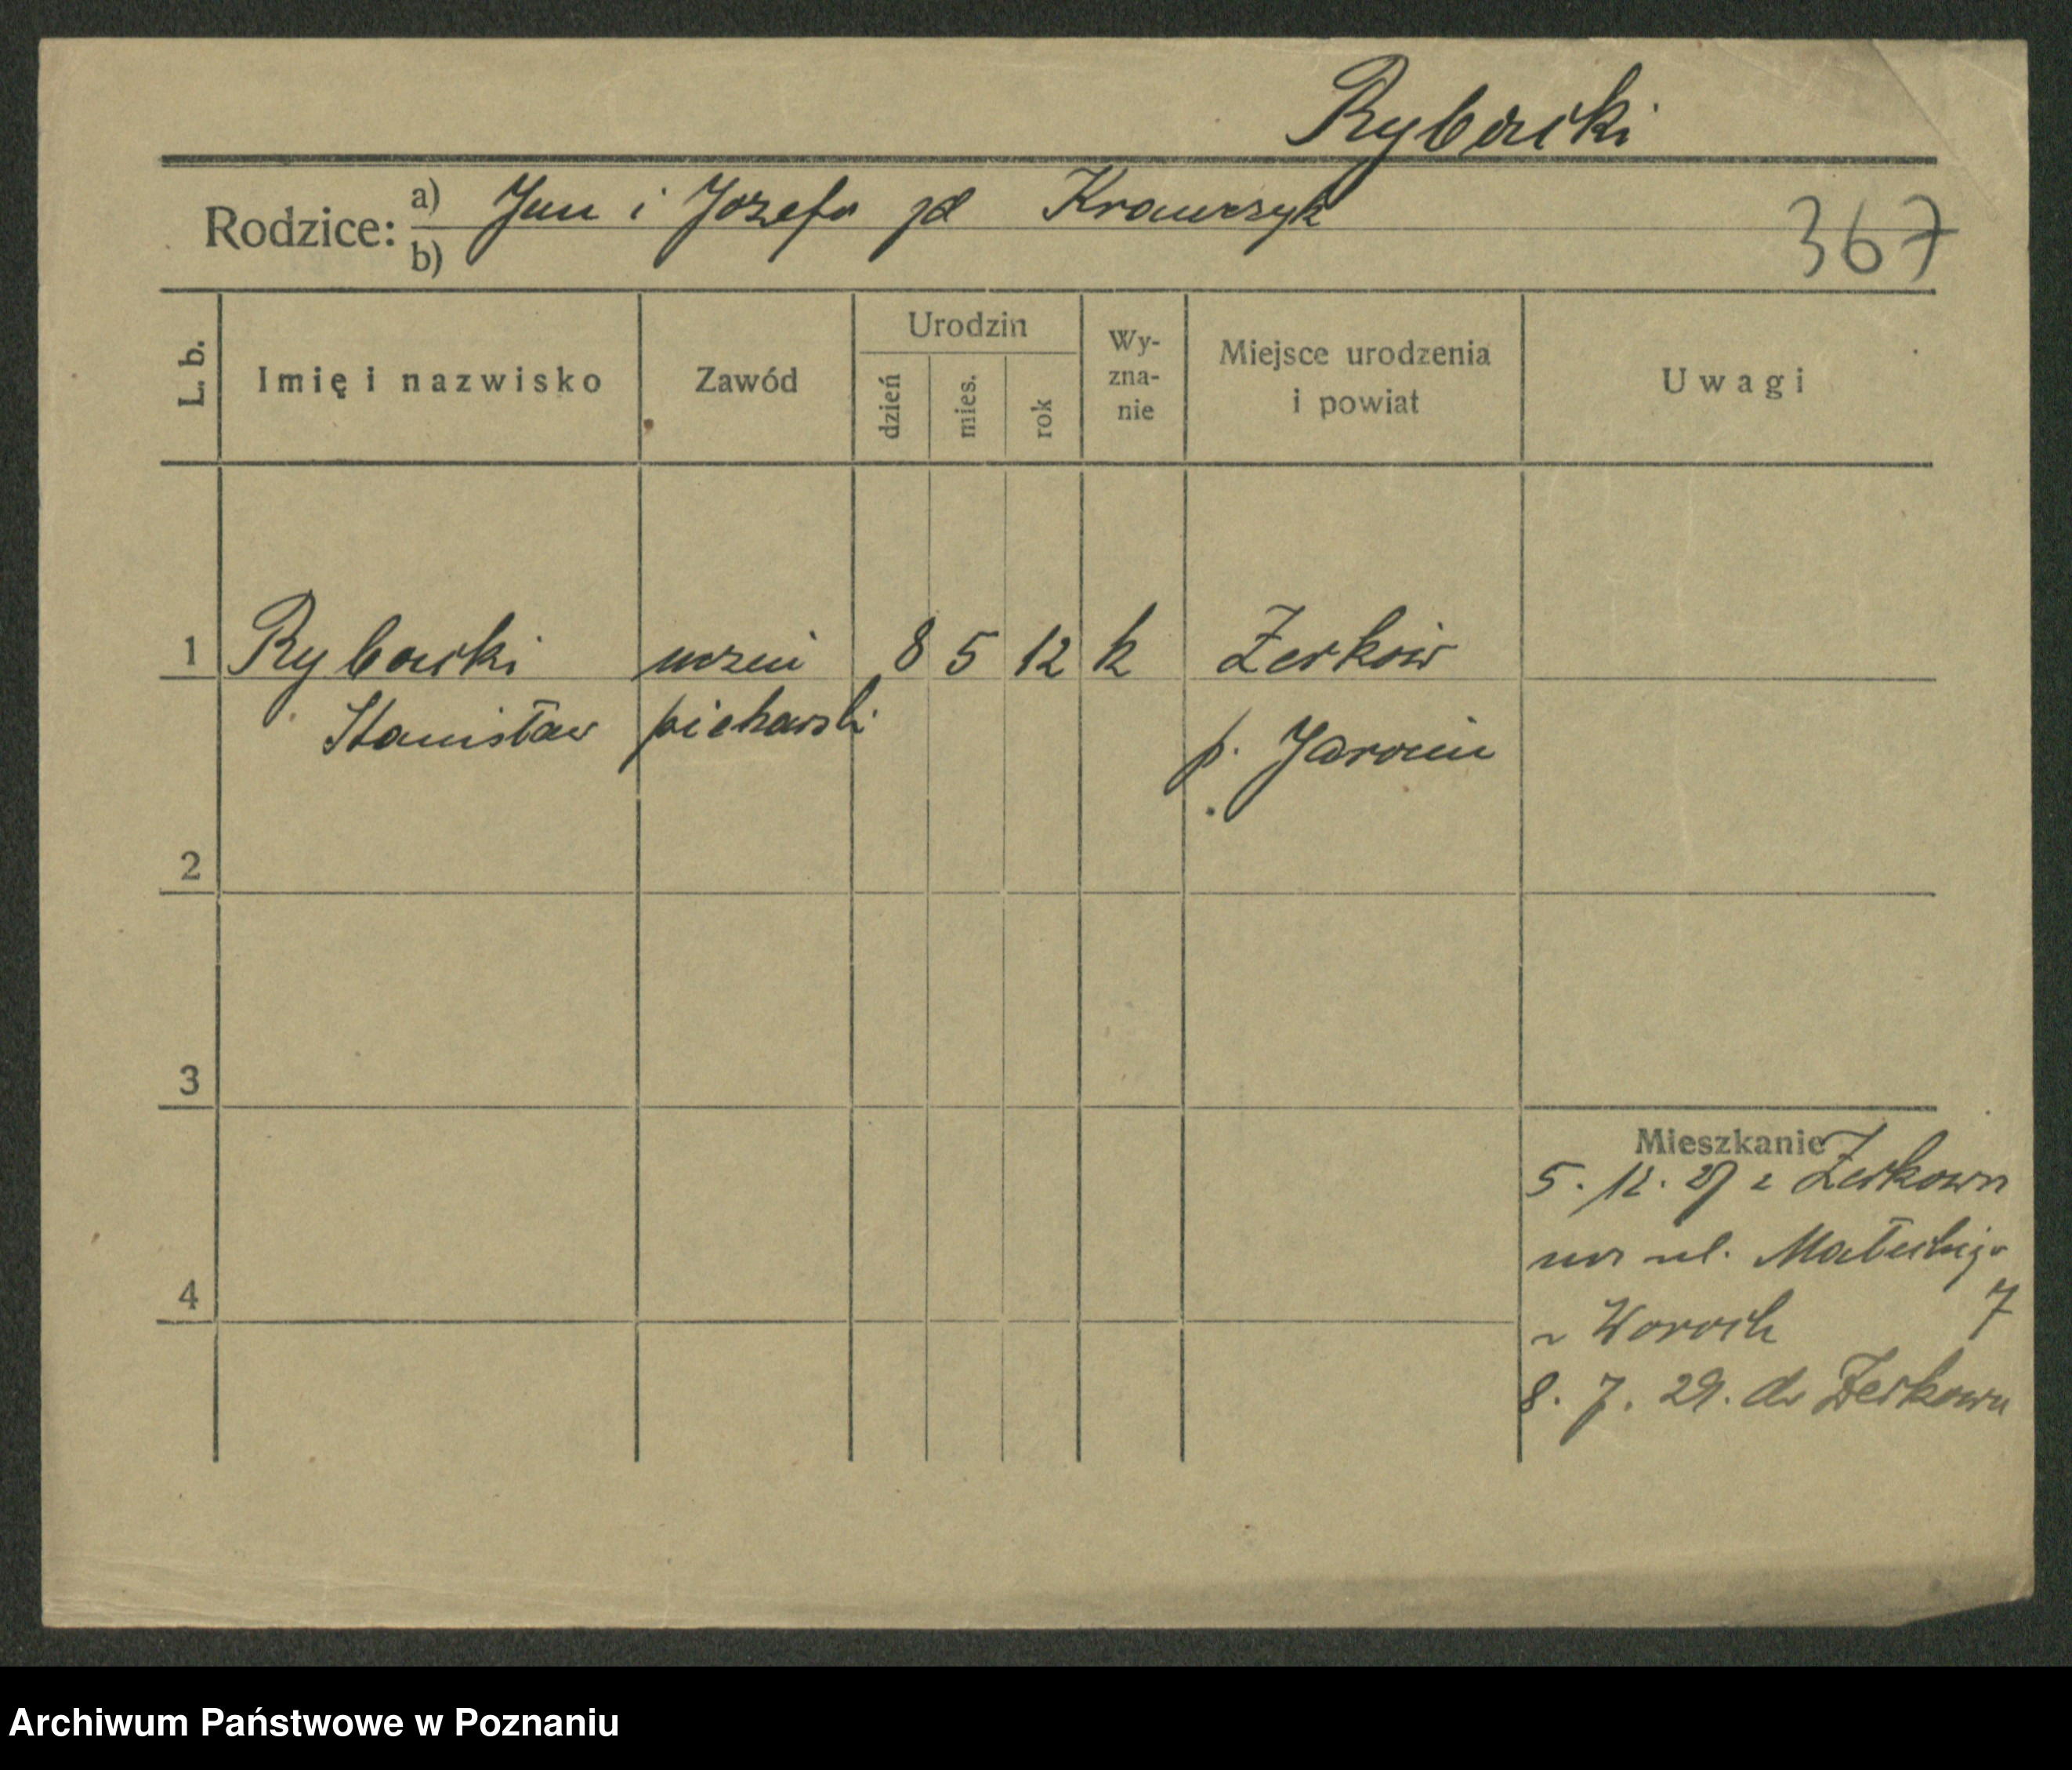 Rybacki
Rodzice: a) Jan i Józefa zd Krawczyk
b)
367
L. b.
Imię i nazwisko
Zawód
Urodzin
dzień
mies.
rok
Wy-
zna-
nie
Miejsce urodzenia
i powiat
Uwagi
1 Rybacki uczeń 8 5 12 k Żerków
Stanisław piekarski p. Jarocin
2
3
Mieszkanie
5. 12. 27 z Żerkowa
na ul. Małeckiego
7
4
u Woroch
8. 7. 29. do Żerkowa
Archiwum Państwowe w Poznaniu